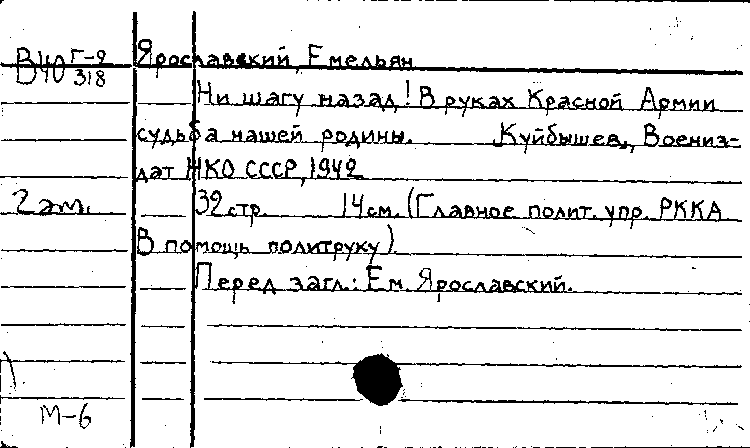 В40 Г-2 Ярославский, Емельян
318
Ни шагу назад! В руках Красной Армии
судьба нашей родины. Куйбышев, Воениз-
дат НКО СССР, 1942
2 эт. 32 стр. 14 см. (Главное полит. упр. РККА
В помощь политруку)
Перед загл.: Ем. Ярославский.
М-6